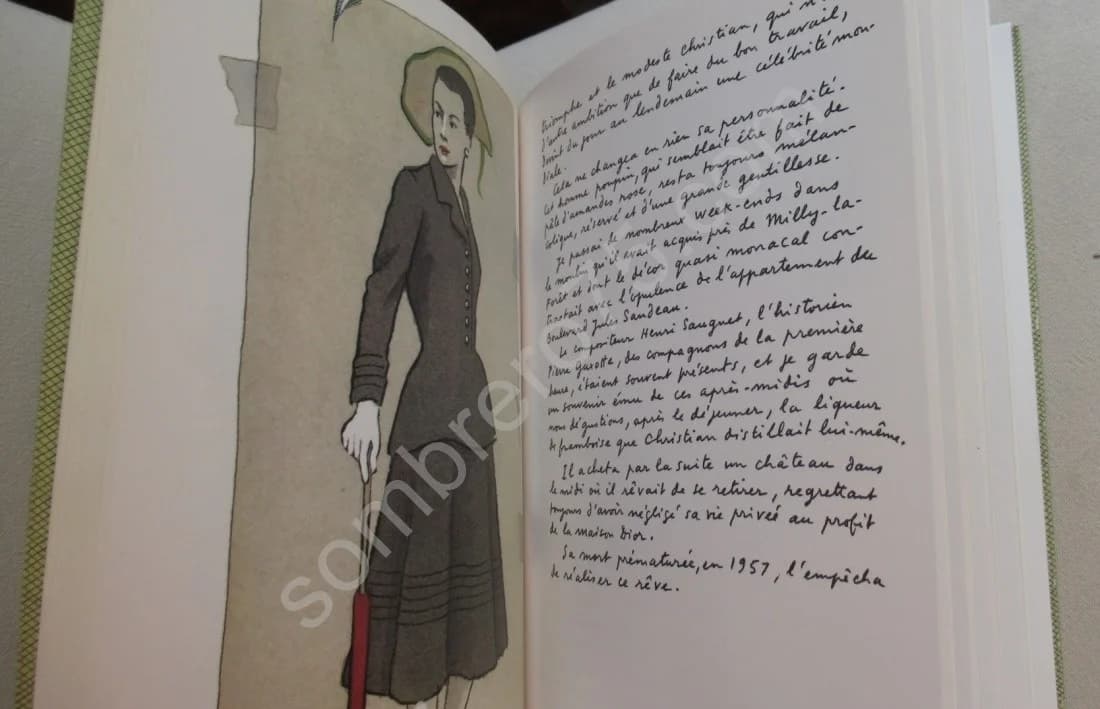 triomphe et le modeste Christian, qui n'
d'autre ambition que de faire du bon travail,
devint du jour au lendemain une célébrité mon-
diale.
Cela ne changea en rien sa personnalité.
Cet homme poupin, qui semblait être fait de
pâte d'amandes rose, resta toujours mélan-
colique, réservé et d'une grande gentillesse.
Je passai de nombreux week-ends dans
le moulin qu'il avait acquis près de Milly-la-
Forêt et dont le décor quasi monacal con-
trastait avec l'opulence de l'appartement du
Boulevard Jules Sandeau.
Le compositeur Henri Sauguet, l'historien
Pierre Gaxotte, des compagnons de la première
heure, étaient souvent présents, et je garde
un souvenir ému de ces après-midis où
nous dégustions, après le déjeuner, la liqueur
de framboise que Christian distillait lui-même.
Il acheta par la suite un château dans
le midi où il rêvait de se retirer, regrettant
toujours d'avoir négligé sa vie privée au profit
de la maison Dior.
Sa mort prématurée, en 1957, l'empêcha
de réaliser ce rêve.